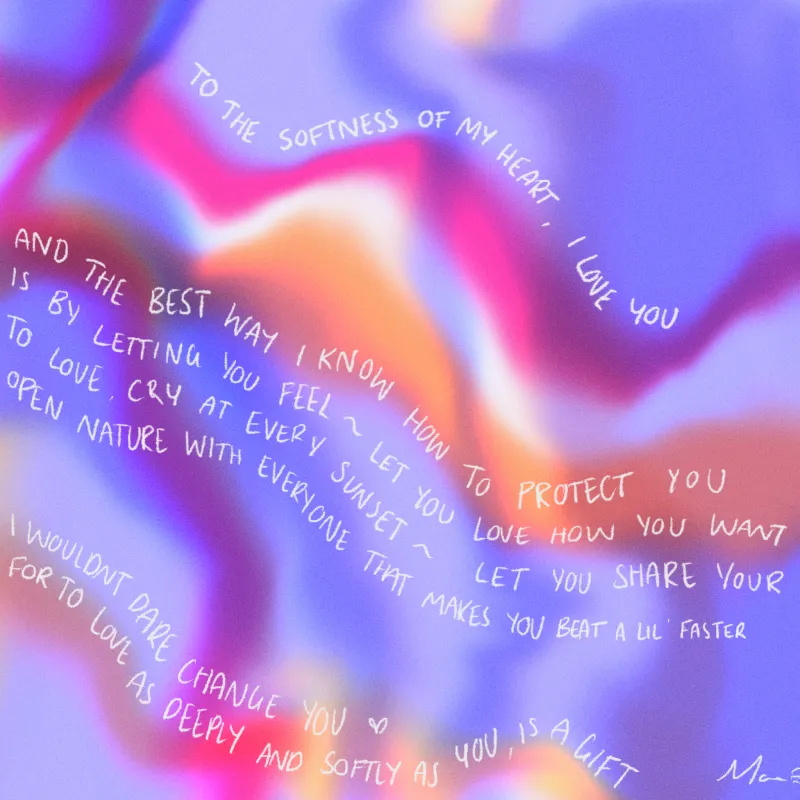 TO THE SOFTNESS OF MY HEART, I LOVE YOU
AND THE BEST WAY I KNOW HOW TO PROTECT YOU
IS BY LETTING YOU FEEL ~ LET YOU LOVE HOW YOU WANT
TO LOVE, CRY AT EVERY SUNSET ~ LET YOU SHARE YOUR
OPEN NATURE WITH EVERYONE THAT MAKES YOU BEAT A LIL' FASTER
I WOULDNT DARE CHANGE YOU ♡
FOR TO LOVE AS DEEPLY AND SOFTLY AS YOU, IS A GIFT